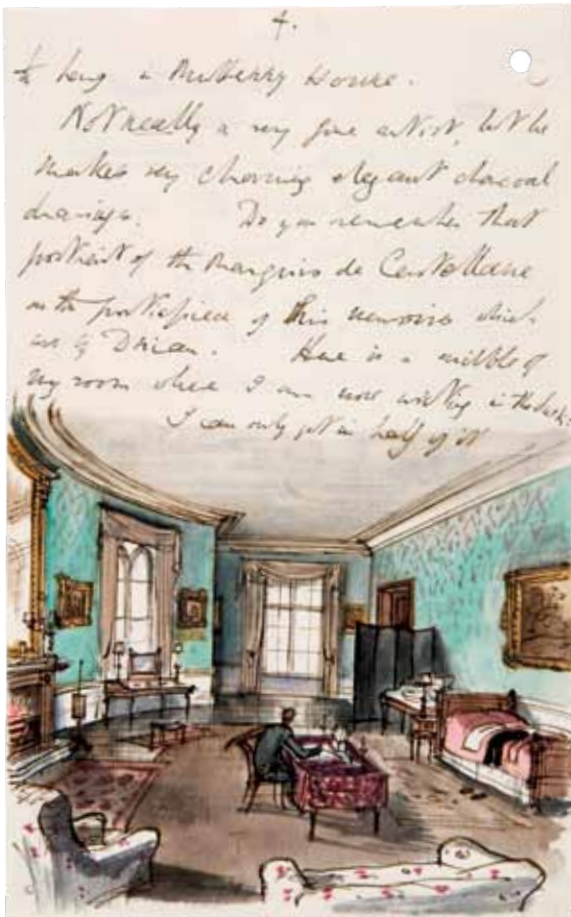 4.
to hang in Mulberry House.
Not really a very fine artist, but he
makes very charming elegant charcoal
drawings. Do you remember that
portrait of the Marquis de Castellane
on the frontispiece of his memoirs which
Here is a scribble of
my room where I am now writing in the dusk.
I can only get in half of it